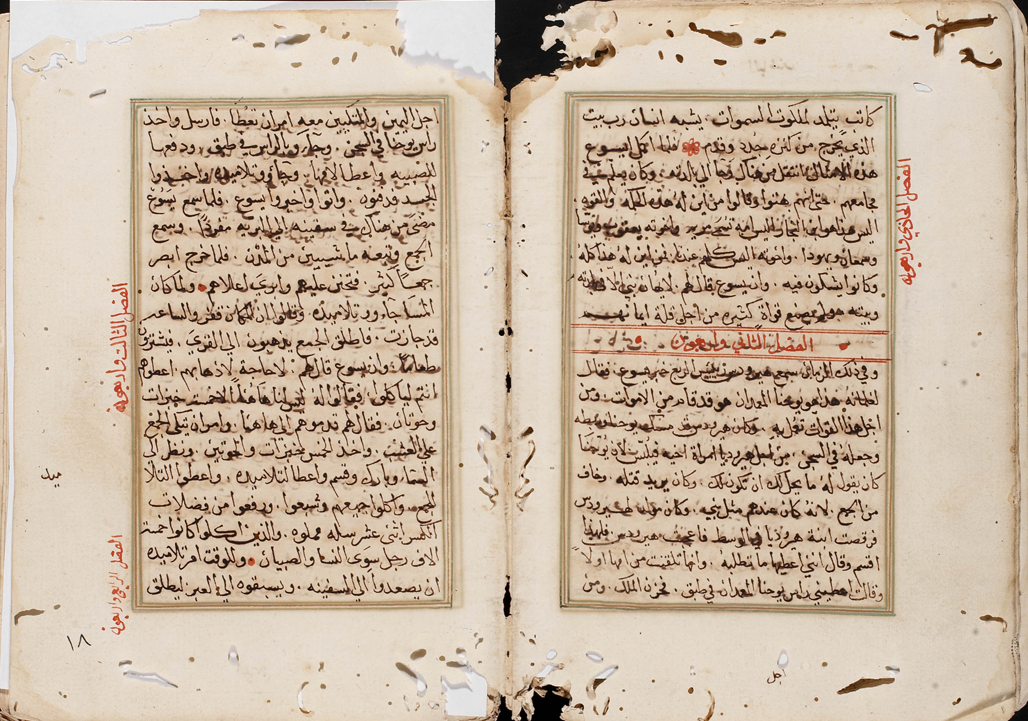 كاتب يتلمد لملكوت السموات . يشبه انسان رب بيت
الذي يخرج من كنزه جدد وقدم فلما اكمل ايسوع
هذه الامثال انتقل من هناك وجا الى بلدته . وكان يعلمهم في
مجامعهم . حتى انهم بهتوا وقالوا من اين له هذه الحكمه والقوه
اليس هذا هو ابن النجار اليس امه تسمى مريم . واخوته يعقوب ويوسا
وسمعان ويهودا . واخوته اليس كلهم عندنا فمن اين له هذا كله
وكانوا يشكون فيه . وان يسوع قال لهم . لا يهان نبي الا في مدينته
وبيته ولم يصنع قواة كثيره من اجل قلة ايمانهم
الفصل الثاني واربعون
وفي ذلك الزمان سمع هيرودس رييس الربع خبر يسوع . فقال
لغلمانه هذا هو يوحنا المعمدان هو قد قام من الاموات . ومن
اجل هذا القوات تعمل به . وكان هيرودس قد مسك يوحنا وربطه
وجعله في السجن . من اجل هيروديا امراة اخيه فيلبس لان يوحنا
كان يقول له ما يحل لك ان تكون لك . وكان يريد قتله . وخاف
من الجمع . لانه كان عندهم مثل نبي . وكان مولد هيرودس
فرقصت ابنة هيروديا في الوسط فاعجبت هيرودس فلهذا
اقسم وقال انني اعطيها ما تطلبه . وانها تلقنت من امها اولا
وقالت اعطيني راس يوحنا المعمدان في طبق . فحزن الملك . ومن
الفصل الحادي واربعون
اجل
اجل اليمين والمتكيين معه امر ان تعطا . فارسل واخذ
راس يوحنا في السجن . وجا وبالراس في طبق . ودفعها
للصبيه واعطا لامها . وجاو تلاميذه واخذوا
الجسد ودفنوه . واتوا واخبروا يسوع . فلما سمع يسوع
مضى من هناك في سفينه الى البريه مفردا . وسمع
الجمع وتبعه ماشيين من المدن . فلما خرج ابصر
جمعا كثير . فتحنن عليهم وابرى اعلاهم ولما كان
المسا جاوه تلاميذه . وقالوا ان المكان قفر والساعه
قد جازت . فاطلق الجمع يذهبون الى القرى . فيشترون
طعاما . وان يسوع قال لهم . لا حاجة لذهابهم . اعطوهم
انتم لياكلوا . فقالوا له ليس لنا هاهنا الا خمس خبزات
وحوتان . وقال لهم قدموهم الى هاهنا . وامر ان يتكى الجمع
على العشب . واخذ الخمس خبزات والحوتين . ونظر الى
السما . وبارك وقسم واعطا لتلاميذه . واعطوا التلا
للجمع . واكلوا جميعهم وشبعوا . ورفعوا من فضلات
الكسر اثنى عشر سله مملوه . والذين اكلوا كانوا خمسة
الاف رجل سوى النسا والصبيان وللوقت امر تلاميذه
ان يصعدوا الى السفينه . ويسبقوه الى العبر ليطلق
الفصل الثالث واربعون
الفصل الرابع واربعون
١٨